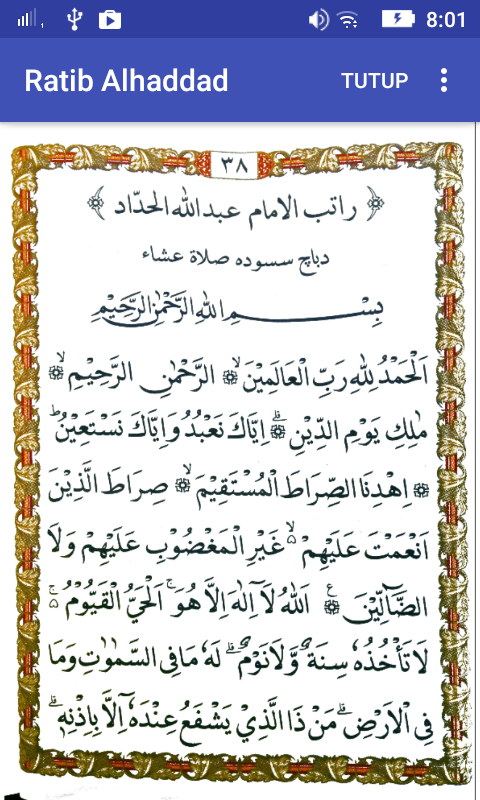 8:01
Ratib Alhaddad
TUTUP
٣٨
راتب الامام عبد الله الحدّاد
دباچ سسوده صلاة عشاء
بِسْمِ اللهِ الرَّحْمٰنِ الرَّحِيْمِ
اَلْحَمْدُ لِلّٰهِ رَبِّ الْعَالَمِيْنَ ۙ الرَّحْمٰنِ الرَّحِيْمِ ۙ
مٰلِكِ يَوْمِ الدِّيْنِ ۗ اِيَّاكَ نَعْبُدُ وَاِيَّاكَ نَسْتَعِيْنُ ۗ
اِهْدِنَا الصِّرَاطَ الْمُسْتَقِيْمَ ۙ صِرَاطَ الَّذِيْنَ
اَنْعَمْتَ عَلَيْهِمْ ۙ غَيْرِ الْمَغْضُوْبِ عَلَيْهِمْ وَلَا
الضَّآلِّيْنَ ۚ اَللهُ لَآ اِلٰهَ اِلَّا هُوَ ۚ اَلْحَيُّ الْقَيُّوْمُ ۚ
لَا تَأْخُذُهٗ سِنَةٌ وَّلَا نَوْمٌ ۗ لَهٗ مَا فِى السَّمٰوٰتِ وَمَا
فِى الْاَرْضِ ۗ مَنْ ذَا الَّذِيْ يَشْفَعُ عِنْدَهٗٓ اِلَّا بِاِذْنِهٖ ۗ